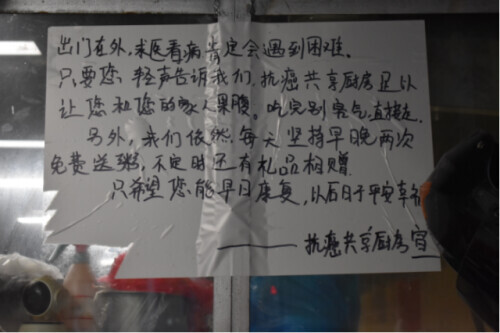 出门在外，求医看病肯定会遇到困难.
只要您轻声告诉我们，抗癌共享厨房足以
让您和您的家人果腹。吃完别客气直接走.
另外，我们依然每天坚持早晚两次
免费送粥，不定时还有礼品相赠.
只希望您能早日康复，以后日子平安幸福
—— 抗癌共享厨房宣